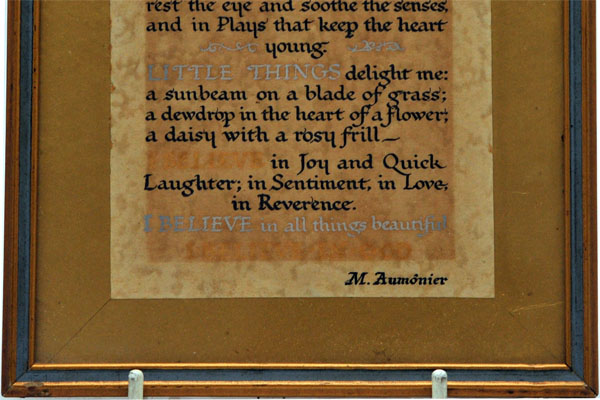 rest the eye and soothe the senses,
and in Plays that keep the heart
young.
LITTLE THINGS delight me:
a sunbeam on a blade of grass;
a dewdrop in the heart of a flower;
a daisy with a rosy frill—
in Joy and Quick
Laughter; in Sentiment, in Love,
in Reverence.
I BELIEVE in all things beautiful
M. Aumônier